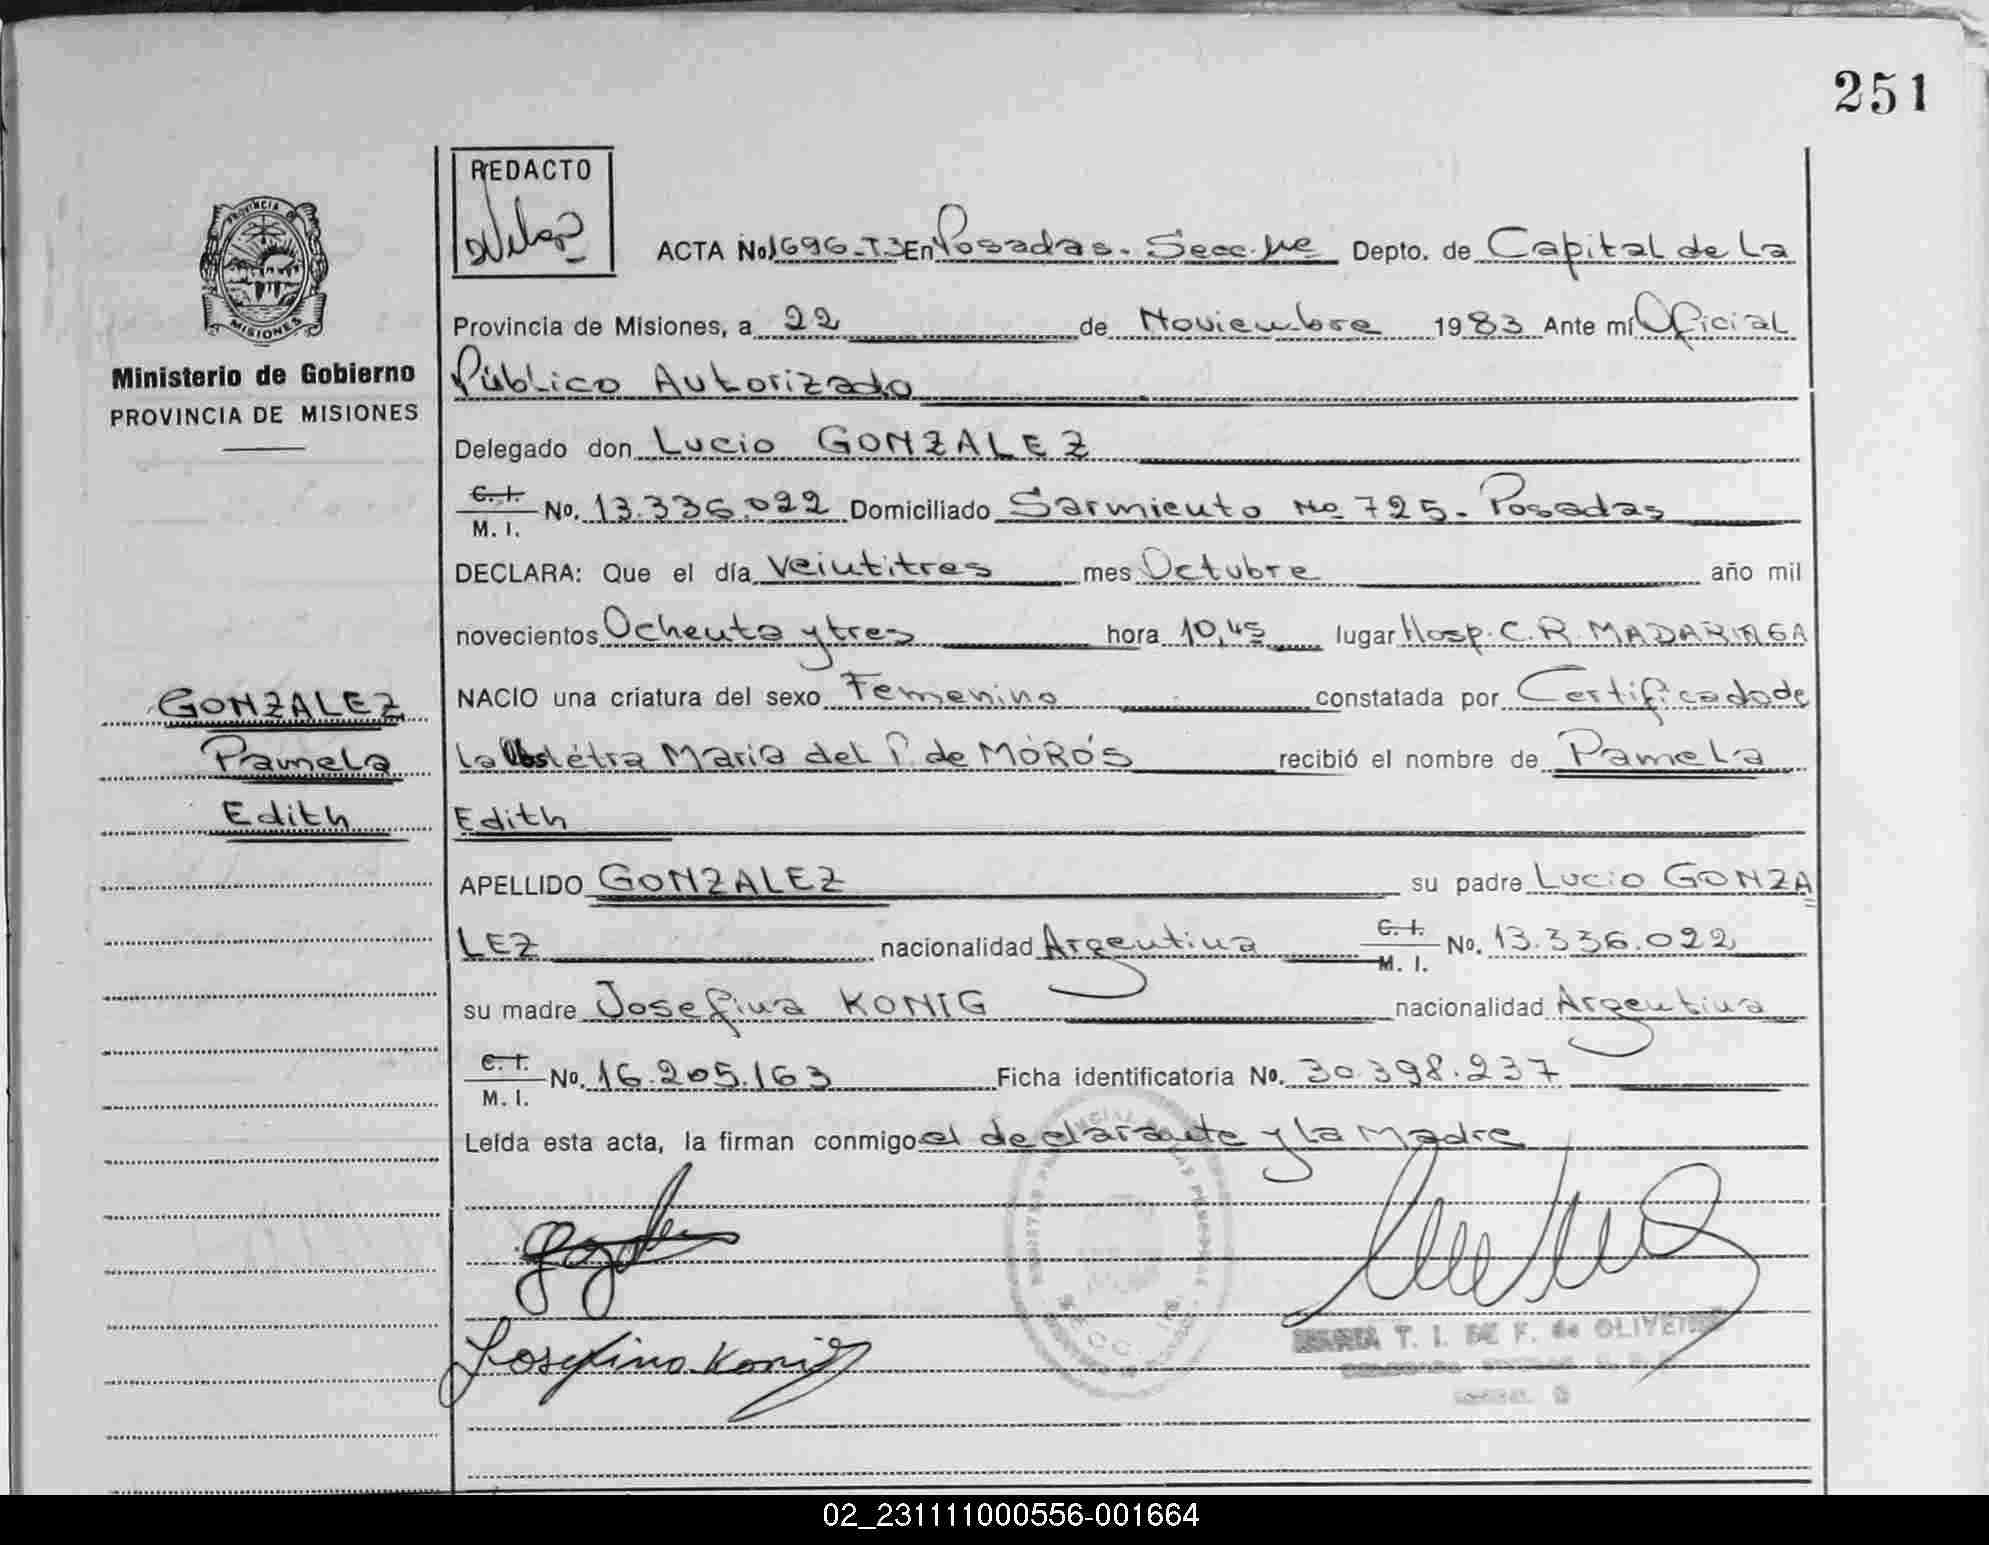 251
REDACTO
PROVINCIA DE
MISIONES
Ministerio de Gobierno
PROVINCIA DE MISIONES
ACTA No 1696-T3 En Posadas. Secc. 1ra Depto. de Capital de La
Provincia de Misiones, a 22 de Noviembre 1983 Ante mí Oficial
Público Autorizado
Delegado don Lucio GONZALEZ
C. I.
M. I. No. 13.336.022 Domiciliado Sarmiento No 725. Posadas
DECLARA: Que el día Veintitres mes Octubre año mil
novecientos Ochenta y tres hora 10,45 lugar Hosp. C. R. MADARIAGA
NACIO una criatura del sexo Femenino constatada por Certificado de
La Obstétra Maria del P. de MOROS recibió el nombre de Pamela
Edith
GONZALEZ
Pamela
Edith
APELLIDO GONZALEZ su padre Lucio GONZA
LEZ nacionalidad Argentina C. I. M. I. No. 13.336.022
su madre Josefina KONIG nacionalidad Argentina
C. I.
M. I. No. 16.205.163 Ficha identificatoria No. 30.398.237
Leída esta acta, la firman conmigo el declarante y la Madre
Josefina Konig
T. I. DE F. de OLIVEIRA
02_231111000556-001664